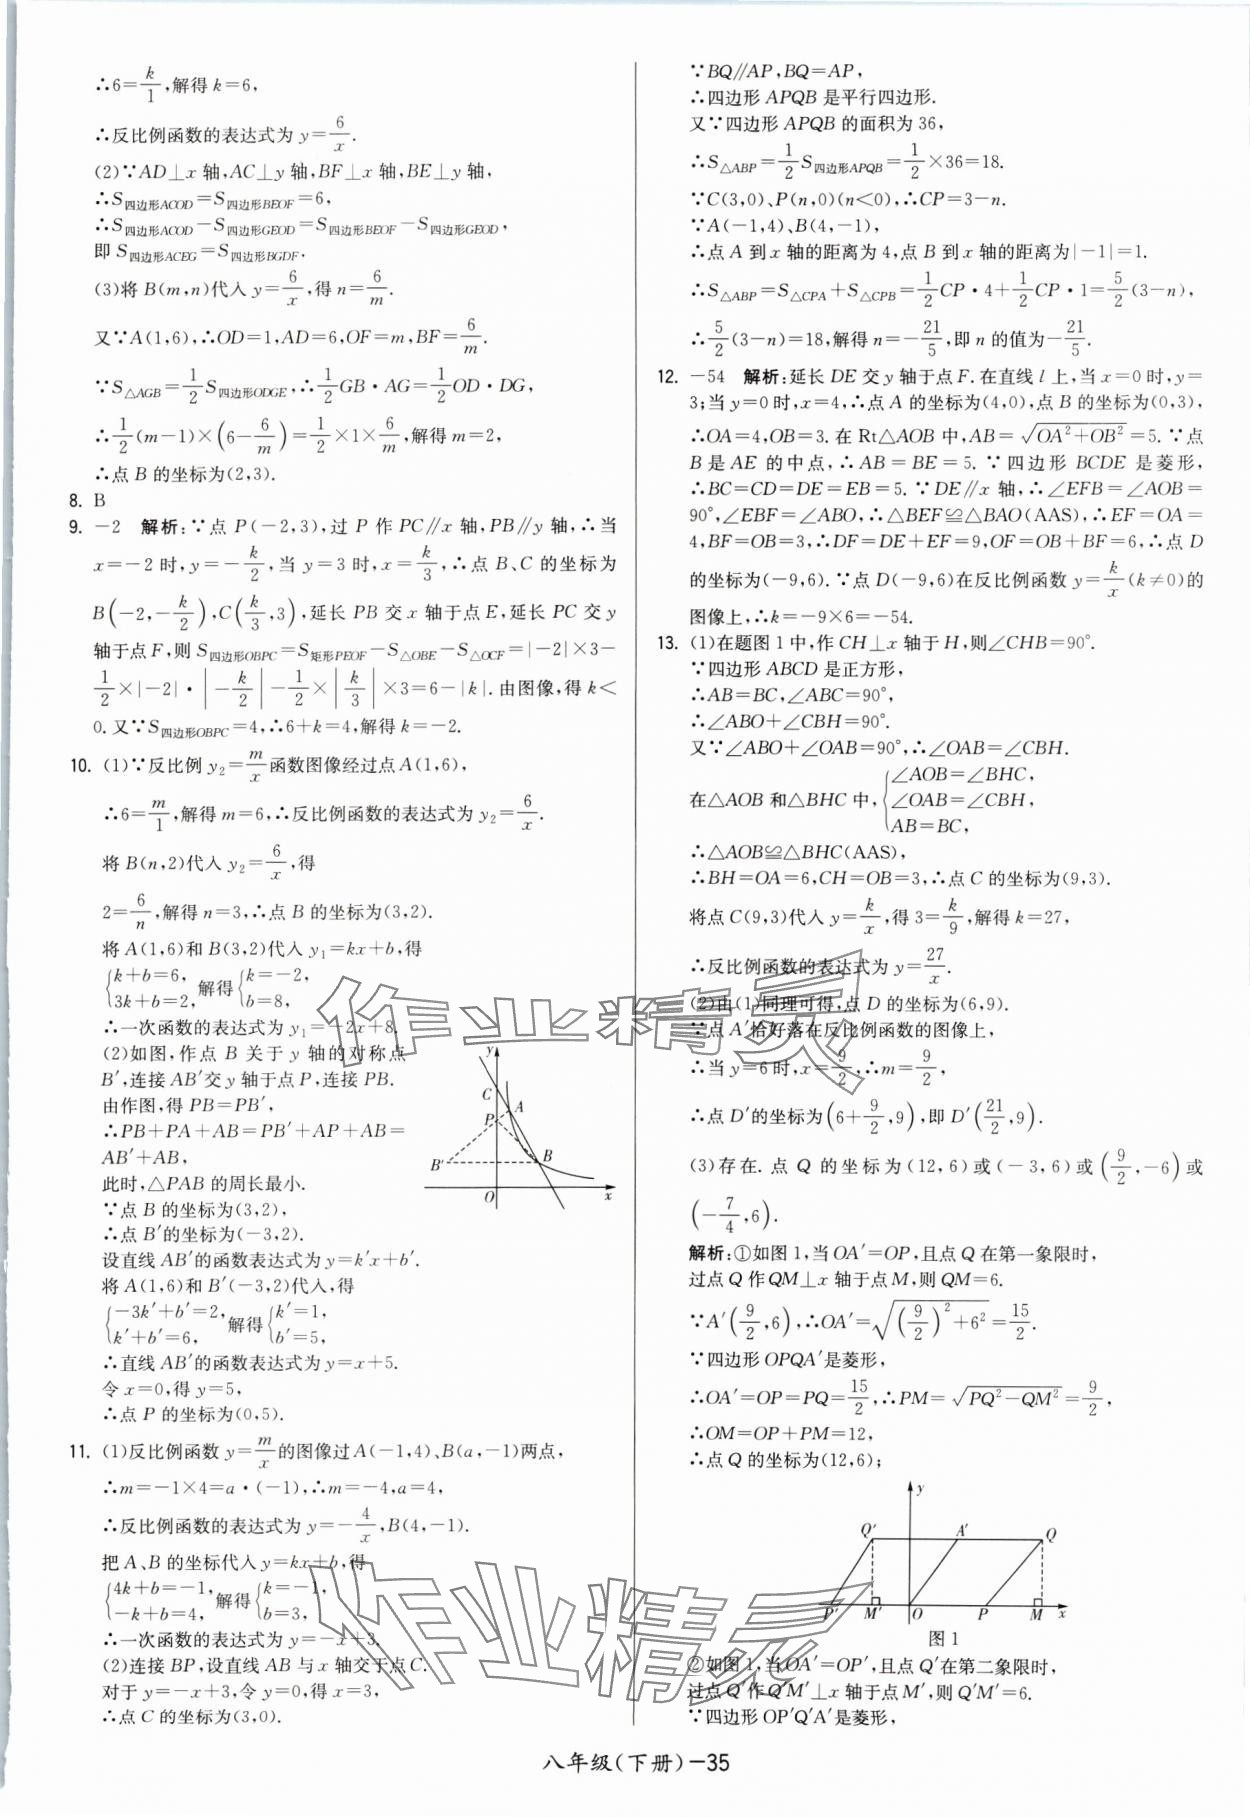 ∴6=k/1,解得k=6,
∴反比例函数的表达式为y=6/x.
(2)∵AD⊥x轴,AC⊥y轴,BF⊥x轴,BE⊥y轴,
∴S四边形ACOD=S四边形BEOF=6,
∴S四边形ACOD-S四边形GEOD=S四边形BEOF-S四边形GEOD,
即S四边形ACEG=S四边形BGDF.
(3)将B(m,n)代入y=6/x,得n=6/m.
又∵A(1,6),∴OD=1,AD=6,OF=m,BF=6/m.
∵S△AGB=1/2S四边形ODGE,∴1/2GB·AG=1/2OD·DG,
∴1/2(m-1)×(6-6/m)=1/2×1×6/m,解得m=2,
∴点B的坐标为(2,3).
8. B
9. -2 解析:∵点P(-2,3),过P作PC∥x轴,PB∥y轴,∴当
x=-2时,y=-k/2,当y=3时,x=k/3,∴点B、C的坐标为
B(-2,-k/2),C(k/3,3),延长PB交x轴于点E,延长PC交y
轴于点F,则S四边形OBPC=S矩形PEOF-S△OBE-S△OCF=|-2|×3-
1/2×|-2|·|-k/2|-1/2×|k/3|×3=6-|k|.由图像,得k<
0.又∵S四边形OBPC=4,∴6+k=4,解得k=-2.
10. (1)∵反比例y₂=m/x函数图像经过点A(1,6),
∴6=m/1,解得m=6,∴反比例函数的表达式为y₂=6/x.
将B(n,2)代入y₂=6/x,得
2=6/n,解得n=3,∴点B的坐标为(3,2).
将A(1,6)和B(3,2)代入y₁=kx+b,得
{k+b=6, 3k+b=2, 解得{k=-2, b=8,
∴一次函数的表达式为y₁=-2x+8.
(2)如图,作点B关于y轴的对称点
B′,连接AB′交y轴于点P,连接PB.
由作图,得PB=PB′,
∴PB+PA+AB=PB′+AP+AB=
AB′+AB,
此时,△PAB的周长最小.
∵点B的坐标为(3,2),
∴点B′的坐标为(-3,2).
设直线AB′的函数表达式为y=k′x+b′.
将A(1,6)和B′(-3,2)代入,得
{-3k′+b′=2, k′+b′=6, 解得{k′=1, b′=5,
∴直线AB′的函数表达式为y=x+5.
令x=0,得y=5,
∴点P的坐标为(0,5).
y
C
A
P
B′
B
O
x
11. (1)反比例函数y=m/x的图像过A(-1,4)、B(a,-1)两点,
∴m=-1×4=a·(-1),∴m=-4,a=4,
∴反比例函数的表达式为y=-4/x,B(4,-1).
把A、B的坐标代入y=kx+b,得
{4k+b=-1, -k+b=4, 解得{k=-1, b=3,
∴一次函数的表达式为y=-x+3.
(2)连接BP,设直线AB与x轴交于点C.
对于y=-x+3,令y=0,得x=3,
∴点C的坐标为(3,0).
∵BQ∥AP,BQ=AP,
∴四边形APQB是平行四边形.
又∵四边形APQB的面积为36,
∴S△ABP=1/2S四边形APQB=1/2×36=18.
∵C(3,0)、P(n,0)(n<0),∴CP=3-n.
∵A(-1,4)、B(4,-1),
∴点A到x轴的距离为4,点B到x轴的距离为|-1|=1.
∴S△ABP=S△CPA+S△CPB=1/2CP·4+1/2CP·1=5/2(3-n),
∴5/2(3-n)=18,解得n=-21/5,即n的值为-21/5.
12. -54 解析:延长DE交y轴于点F.在直线l上,当x=0时,y=
3;当y=0时,x=4,∴点A的坐标为(4,0),点B的坐标为(0,3),
∴OA=4,OB=3.在Rt△AOB中,AB=√(OA²+OB²)=5.∵点
B是AE的中点,∴AB=BE=5.∵四边形BCDE是菱形,
∴BC=CD=DE=EB=5.∵DE∥x轴,∴∠EFB=∠AOB=
90°,∠EBF=∠ABO,∴△BEF≌△BAO(AAS),∴EF=OA=
4,BF=OB=3,∴DF=DE+EF=9,OF=OB+BF=6,∴点D
的坐标为(-9,6).∵点D(-9,6)在反比例函数y=k/x(k≠0)的
图像上,∴k=-9×6=-54.
13. (1)在题图1中,作CH⊥x轴于H,则∠CHB=90°.
∵四边形ABCD是正方形,
∴AB=BC,∠ABC=90°,
∴∠ABO+∠CBH=90°.
又∵∠ABO+∠OAB=90°,∴∠OAB=∠CBH.
在△AOB和△BHC中,{∠AOB=∠BHC, ∠OAB=∠CBH, AB=BC,
∴△AOB≌△BHC(AAS),
∴BH=OA=6,CH=OB=3,∴点C的坐标为(9,3).
将点C(9,3)代入y=k/x,得3=k/9,解得k=27,
∴反比例函数的表达式为y=27/x.
(2)由(1)同理可得,点D的坐标为(6,9).
∵点A′恰好落在反比例函数的图像上,
∴当y=6时,x=9/2,∴m=9/2,
∴点D′的坐标为(6+9/2,9),即D′(21/2,9).
(3)存在.点Q的坐标为(12,6)或(-3,6)或(9/2,-6)或
(-7/4,6).
解析:①如图1,当OA′=OP,且点Q在第一象限时,
过点Q作QM⊥x轴于点M,则QM=6.
∵A′(9/2,6),∴OA′=√((9/2)²+6²)=15/2.
∵四边形OPQA′是菱形,
∴OA′=OP=PQ=15/2,∴PM=√(PQ²-QM²)=9/2,
∴OM=OP+PM=12,
∴点Q的坐标为(12,6);
y
Q′
A′
Q
P′
M′
O
P
M
x
图1
②如图1,当OA′=OP′,且点Q′在第二象限时,
过点Q′作Q′M′⊥x轴于点M′,则Q′M′=6.
∵四边形OP′Q′A′是菱形,
作业精灵
作业精灵
八年级(下册)-35